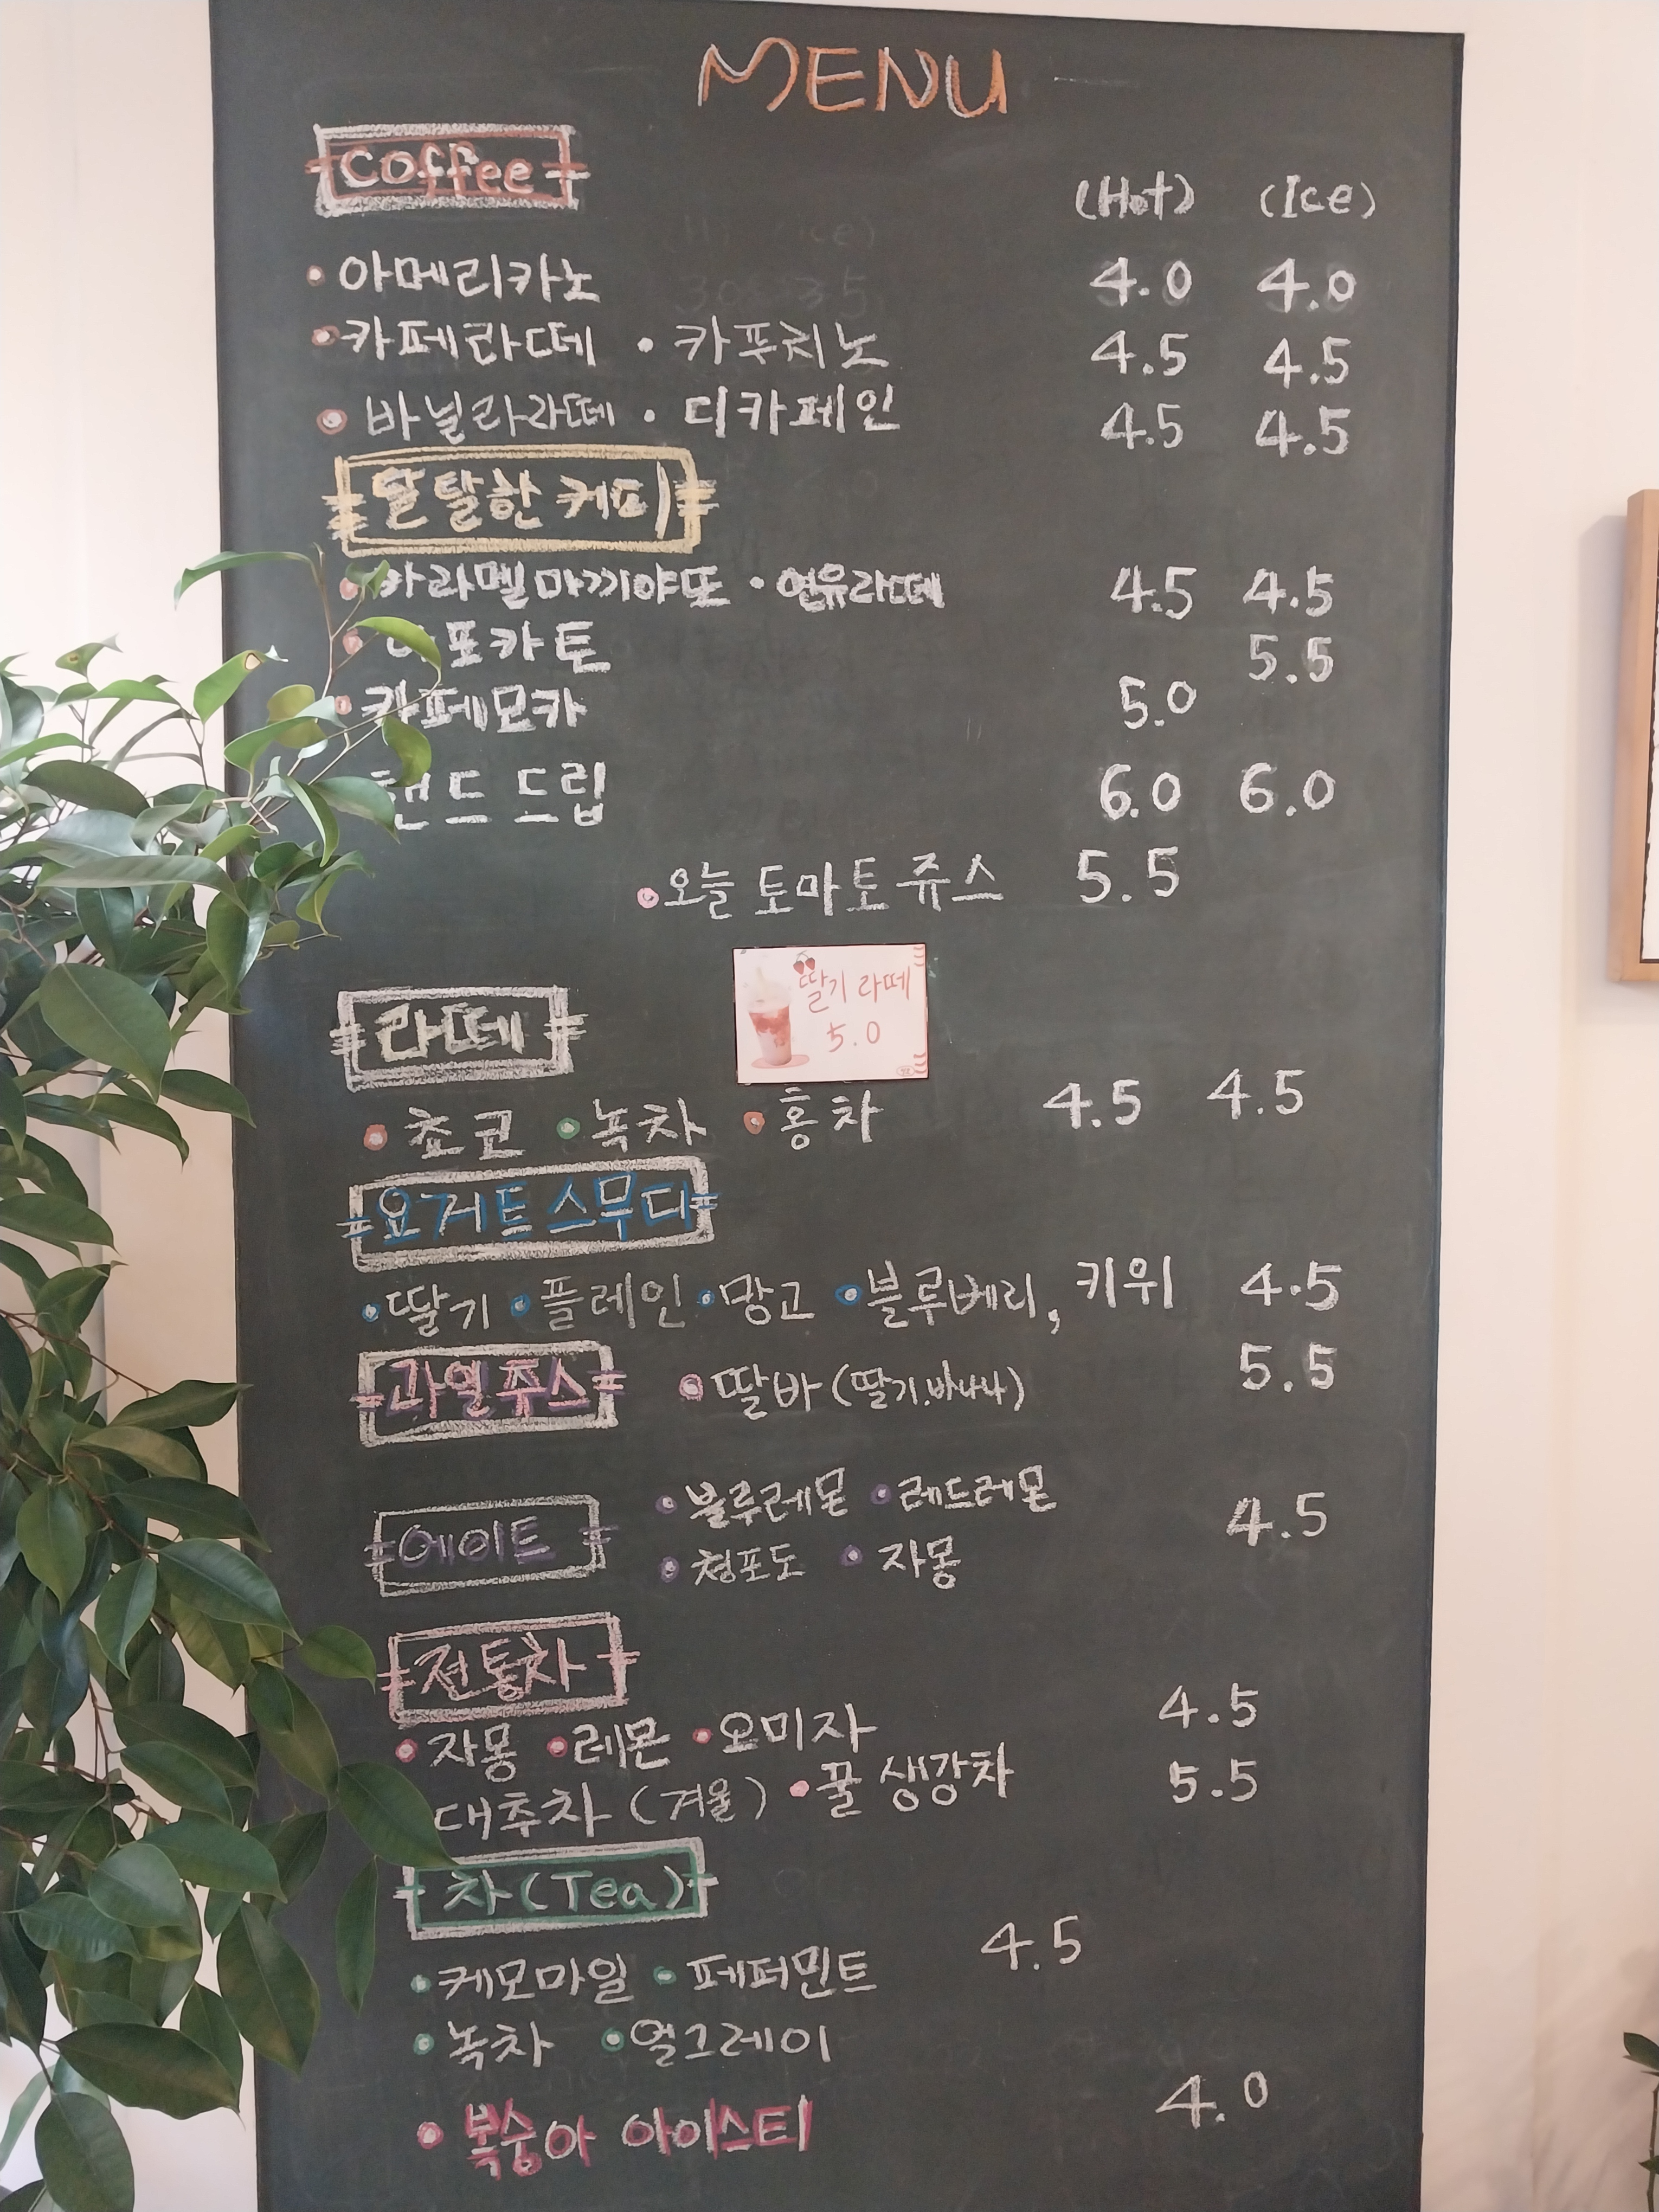 MENU
Coffee
(Hot) (Ice)
• 아메리카노 4.0 4.0
• 카페라떼 • 카푸치노 4.5 4.5
• 바닐라라떼 • 디카페인 4.5 4.5
달달한 커피
• 카라멜마끼야또 • 연유라떼 4.5 4.5
• 포카토 5.5
• 카페모카 5.0
핸드 드립 6.0 6.0
• 오늘 토마토 쥬스 5.5
딸기 라떼
5.0
라떼
• 쵸코 • 녹차 • 홍차 4.5 4.5
요거트 스무디
• 딸기 • 플레인 • 망고 • 블루베리, 키위 4.5
과일쥬스 • 딸바 (딸기.바나나) 5.5
에이트 • 블루레몬 • 레드레몬 4.5
• 청포도 • 자몽
전통차
• 자몽 • 레몬 • 오미자 4.5
대추차 (겨울) • 꿀 생강차 5.5
차 (Tea)
• 케모마일 • 페퍼민트 4.5
• 녹차 • 얼그레이
• 복숭아 아이스티 4.0